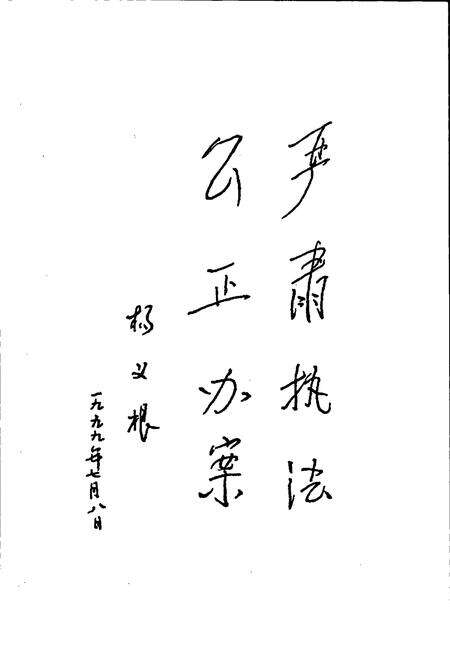 严肃执法
公正办案
杨义根
一九九九年七月八日